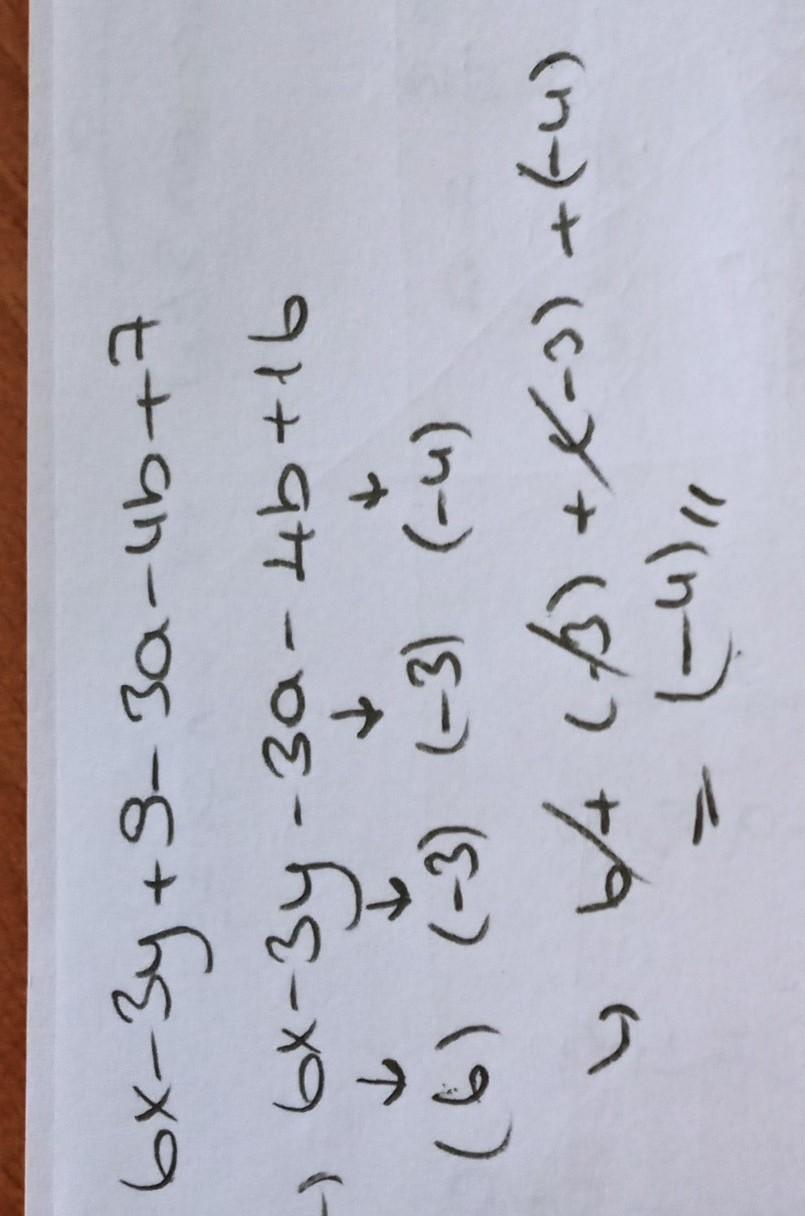 6x-3y+9-3a-4b+7
) 6x-3y-3a-4b+16
↓ ↓ ↓ +
(6) (-3) (-3) (-4)
6+(-3)+(-3)+(-4)
= (-4)"